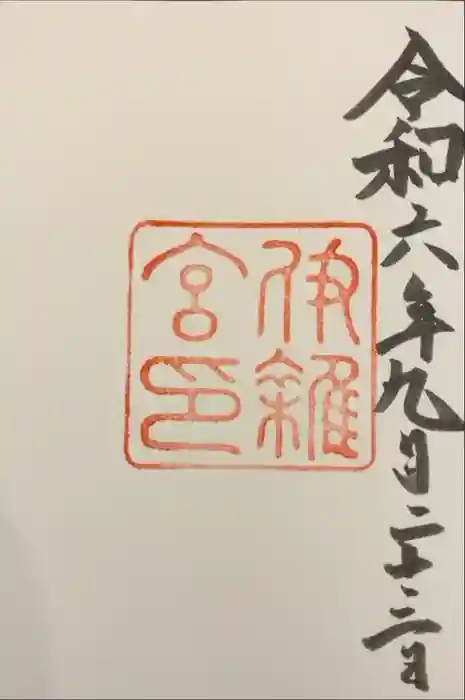 令和六年九月二十三日
伊雜
宮印